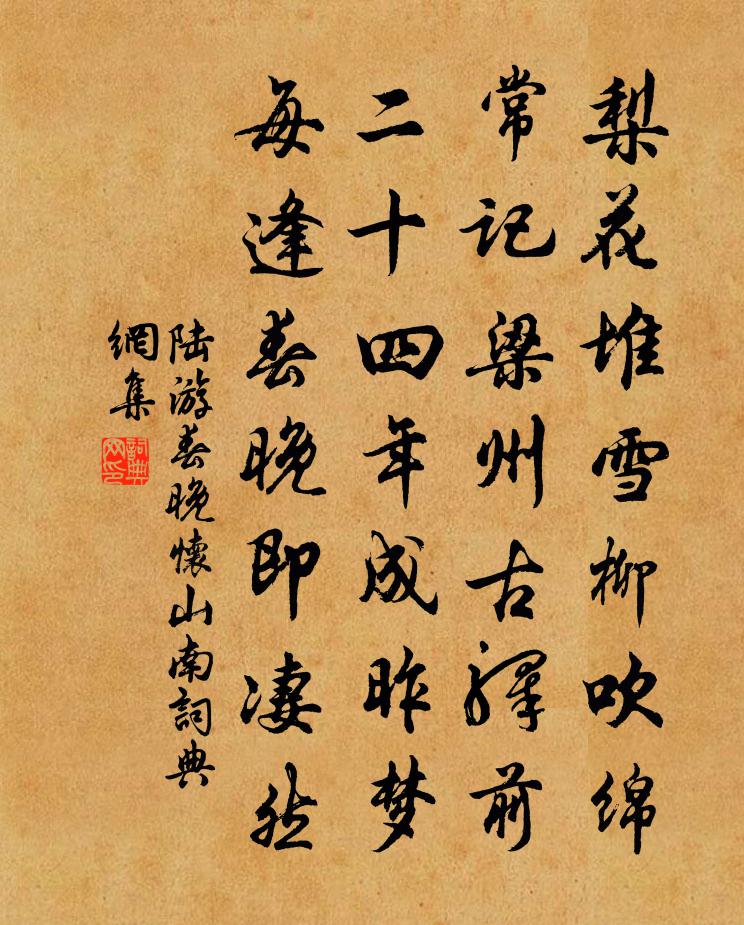 梨花堆雪柳吹綿
常記梁州古驛前
二十四年成昨梦
每逢春晚即凄然
陆游春晚懷山南詞典
網集
詞典
网印